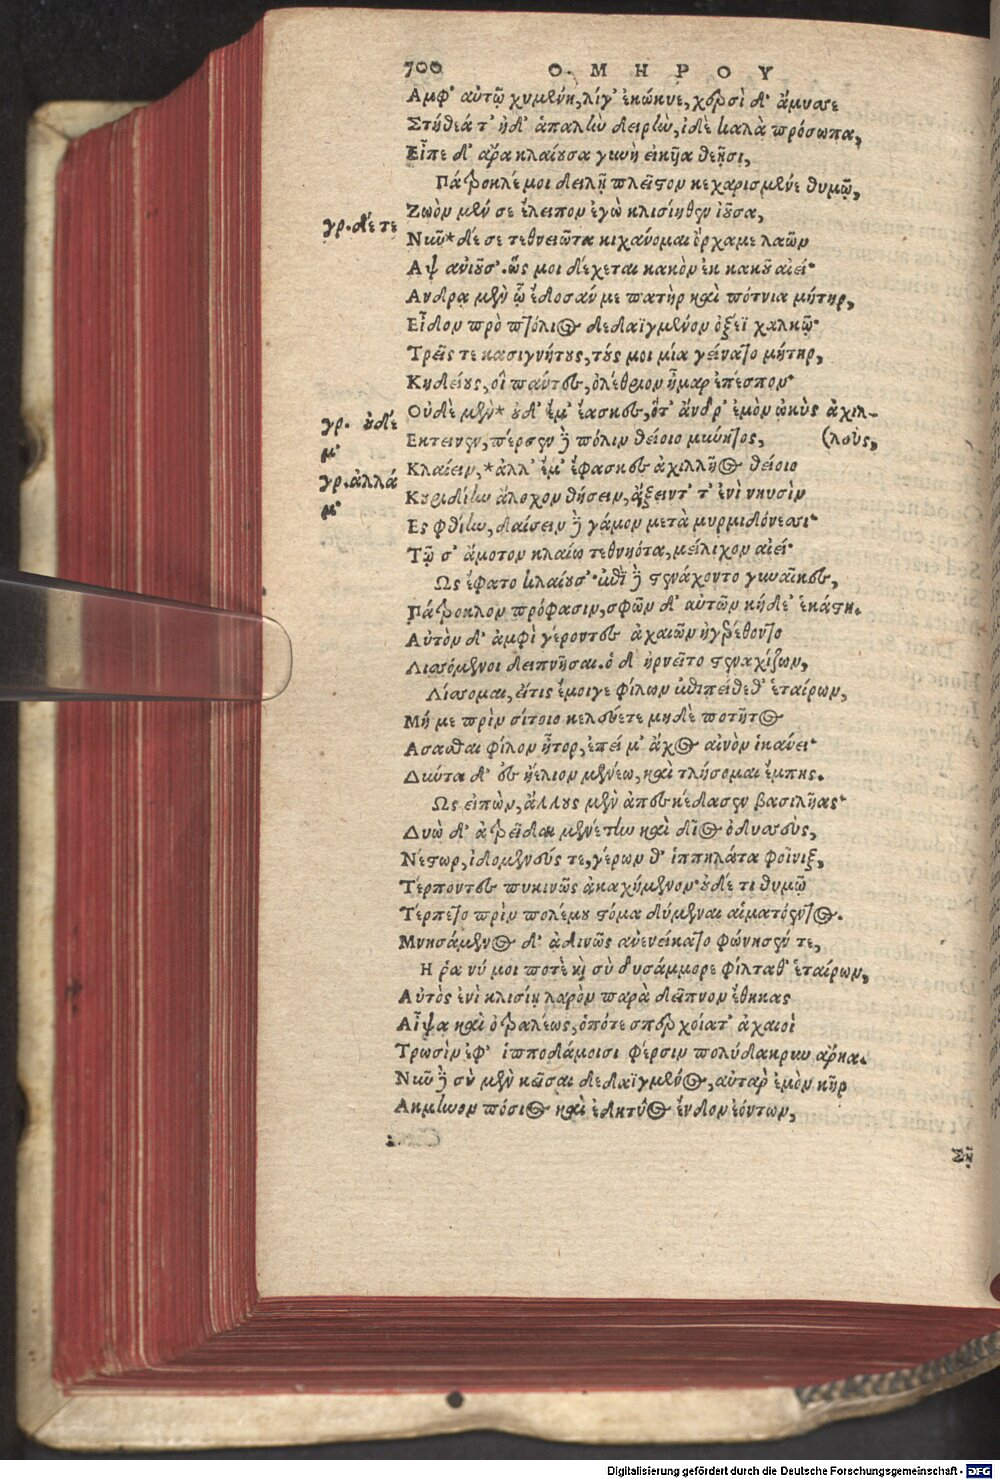 700 ΟΜΗΡΟΥ
Αμφ' αὐτῷ χυμένη, λίγ' ἐκώκυε, χερσὶ δ' ἄμυσσε
Στήθεά τ' ἠδ' ἁπαλὴν δειρὴν, ἰδὲ καλὰ πρόσωπα,
Εἶπε δ' ἄρα κλαίουσα γυνὴ εἰκῆα θεῇσι,
Πάτροκλέ μοι δειλῇ πλεῖστον κεχαρισμένε θυμῷ,
Ζωὸν μέν σε ἔλειπον ἐγὼ κλισίηθεν ἰοῦσα,
γρ. δέ τε
Νῦν* δέ σε τεθνειῶτα κιχάνομαι ὄρχαμε λαῶν
Αψ ανιοῦσ'. ὥς μοι δέχεται κακὸν ἐκ κακοῦ αἰεί·
Ανδρα μὲν ᾧ ἔδοσάν με πατὴρ καὶ πότνια μήτηρ,
Εἶδον πρὸ πτόλιος δεδαϊγμένον ὀξέϊ χαλκῷ·
Τρεῖς τε κασιγνήτους, τούς μοι μία γείνατο μήτηρ,
Κηδείους, οἳ πάντες, ὀλέθριον ἦμαρ ἐπέσπον·
γρ. οὐδέ μ'
Οὐδὲ μὲν* οὐδ' ἔμ' ἔασκες, ὅτ' ἄνδρ' ἐμὸν ὠκὺς ἀχιλ-
Εκτεινεν, πέρσεν δὲ πόλιν θείοιο μύνητος, (λεὺς,
γρ. ἀλλά μ'
Κλαίειν, *ἀλλ' ἔμ' ἔφασκες ἀχιλλῆος θείοιο
Κουριδίην ἄλοχον θήσειν, ἄξειντ' τ' ἐνὶ νηυσὶν
Ες φθίην, δαίσειν δὲ γάμον μετὰ μυρμιδόνεσσι·
Τῷ σ' ἄμοτον κλαίω τεθνηότα, μείλιχον αἰεί·
Ως ἔφατο κλαίουσ'· ἐπὶ δὲ στενάχοντο γυναῖκες,
Πάτροκλον πρόφασιν, σφῶν δ' αὐτῶν κήδε' ἑκάστη.
Αὐτὸν δ' ἀμφὶ γέροντες ἀχαιῶν ἠγερέθοντο
Λισσόμενοι δειπνῆσαι. ὁ δ ἠρνεῖτο στεναχίζων,
Λίσσομαι, εἴτις ἔμοιγε φίλων ἐπιπείθεθ' ἑταίρων,
Μή με πρὶν σίτοιο κελεύετε μηδὲ ποτῆτος
Ασασθαι φίλον ἦτορ, ἐπεί μ' ἄχος αἰνὸν ἱκάνει·
Δύντα δ' ἐς ἠέλιον μενέω, καὶ τλήσομαι ἔμπης.
Ως εἰπὼν, ἄλλους μὲν ἀπεσκέδασεν βασιλῆας·
Δυὼ δ' ἀτρείδαι μενέτην καὶ δῖος ὀδυσσεὺς,
Νέστωρ, ἰδομενεύς τε, γέρων θ' ἱππηλάτα φοῖνιξ,
Τέρποντες πυκινῶς ἀκαχήμενον· οὐδέ τι θυμῷ
Τέρπετο πρὶν πολέμου στόμα δύμεναι αἱματόεντος.
Μνησάμενος δ' ἁδινῶς ανενείκατο φώνησέν τε,
Η ῥα νύ μοι ποτὲ καὶ σὺ δυσάμμορε φίλταθ' ἑταίρων,
Αὐτὸς ἐνὶ κλισίῃ λαρὸν παρὰ δεῖπνον ἔθηκας
Αἶψα καὶ ὀτραλέως, ὁπότε σπερχοίατ' ἀχαιοὶ
Τρωσὶν ἐφ' ἱπποδάμοισι φέρειν πολύδακρυν ἄρηα.
Νῦν δὲ σὺ μὲν κεῖσαι δεδαϊγμένος, αὐτὰρ ἐμὸν κῆρ
Ακμηνον πόσιος καὶ ἐδητύος ἔνδον ἐόντων,
Σῇ
Digitalisierung gefördert durch die Deutsche Forschungsgemeinschaft - DFG